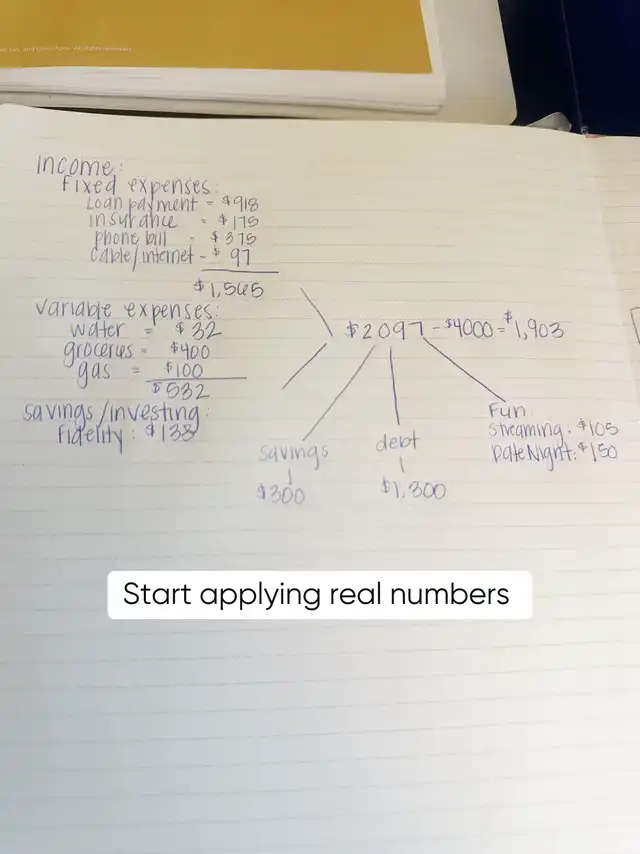 Income:
Fixed expenses:
Loan payment = $918
insurance = $175
phone bill = $375
cable/internet - $ 97
$1,565
Variable expenses:
water = $32
groceries = $400
gas = $100
$532
$2097 - $4000 = $1,903
Savings/investing:
Fidelity: $138
savings
$300
debt
$1,300
Fun
Streaming: $105
DateNight: $150
Start applying real numbers